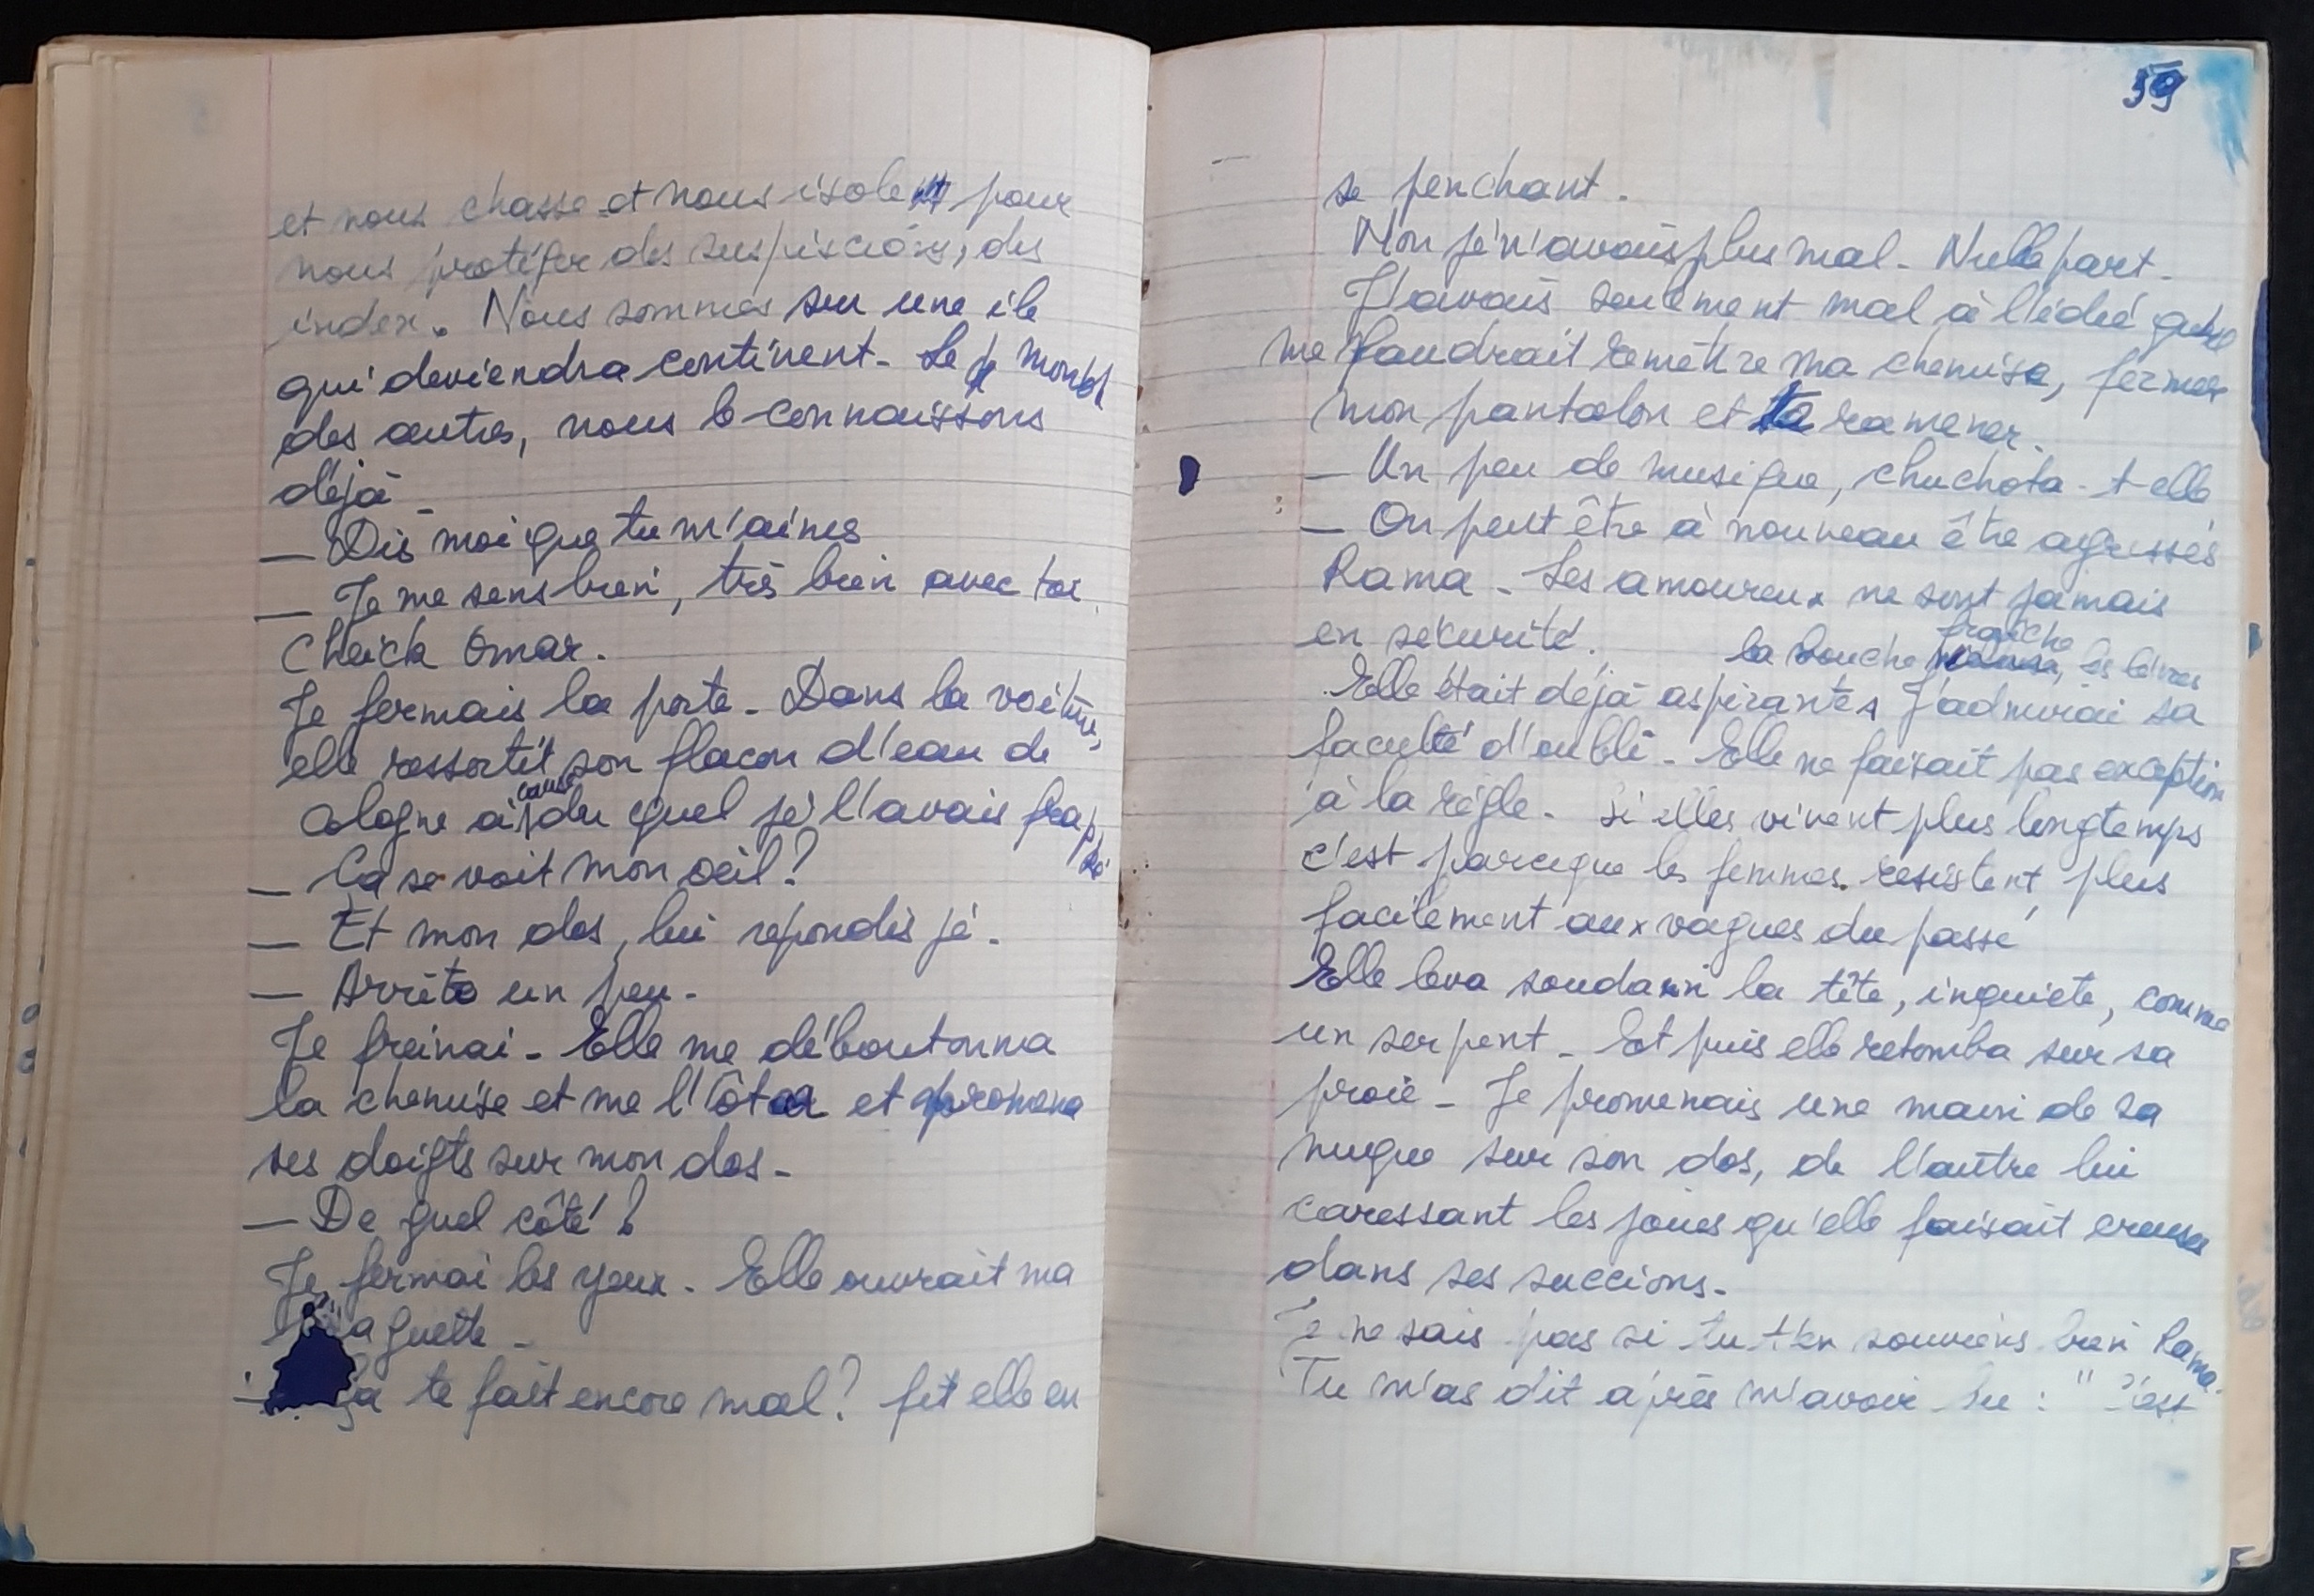 et nous chasse et nous isole pour
nous protéger des suspiscions, des
index. Nous sommes sur une île
qui deviendra continent. Le monde
des autres, nous le connaissons
déjà
— Dis moi que tu m'aimes
— Je me sens bien, très bien avec toi
Cheick Omar.
Je fermais la porte. Dans la voiture,
elle ressortit son flacon d'eau de
cologne à cause du quel je l'avais frappé
— Ça se voit mon oeil ?
— Et mon dos, lui repondis je.
— Arrête un peu.
Je freinai. Elle me déboutonna
la chemise et me l'ôta et promena
ses doigts sur mon dos.
— De quel côté ?
Je fermai les yeux. Elle ouvrait ma
braguette.
— Ça te fait encore mal ? fit elle en
59
se penchant.
Non je n'avais plus mal. Nulle part.
J'avais seulement mal à l'idée qu'il
me faudrait remettre ma chemise, fermer
mon pantalon et la ramener.
— Un peu de musique, chuchota-t elle
— On peut être à nouveau être agressés
Rama. Les amoureux ne sont jamais
en sécurité.
Elle était déjà aspirante, la bouche fraîche, les lèvres J'admirai sa
faculté d'oubli. Elle ne faisait pas exception
à la règle. Si elles vivent plus longtemps
c'est parceque les femmes resistent plus
facilement aux vagues du passé
Elle leva soudain la tête, inquiete, comme
un serpent. Et puis elle retomba sur sa
proie. Je promenais une main de sa
nuque sur son dos, de l'autre lui
caressant les joues qu'elle faisait creuses
dans ses succions.
Je ne sais pas si tu t'en souviens bien Rama.
Tu m'as dit après m'avoir lu : " C'est